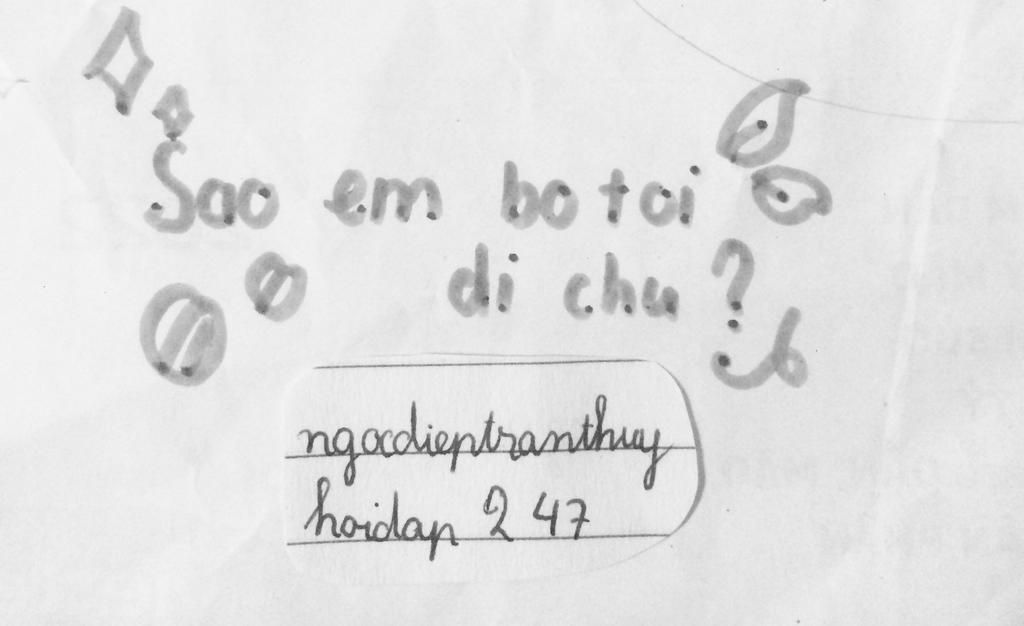 Sao em bo toi
di chu ?
ngocdieptranthuy
hoidap 2 47